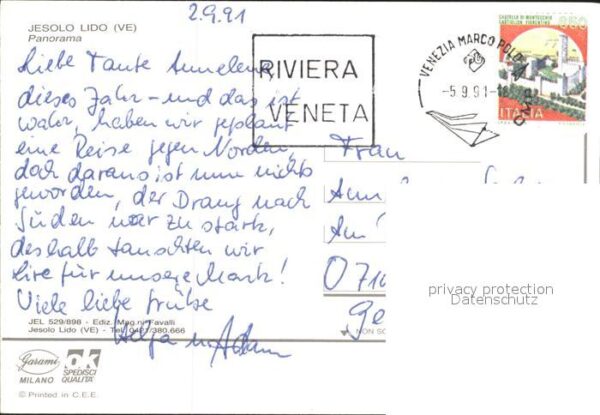 2.9.91
JESOLO LIDO (VE)
Panorama
Liebe Tante Annelene,
dieses Jahr – und das ist
wahr, haben wir geplant
eine Reise gegen Norden,
doch daraus ist nun nichts
geworden, der Drang nach
Süden war zu stark,
deshalb tauschten wir
Lire für unsere Mark!
Viele liebe Grüße
Helga u. Adam
RIVIERA
VENETA
VENEZIA MARCO POLO
-5.9.91-18
CASTELLO DI MONTECCHIO
CASTIGLION FIORENTINO
650
ITALIA
Frau
Am
O 710
Ge
privacy protection
Datenschutz
JEL 529/898 - Ediz. Mag.ni Favalli
Jesolo Lido (VE) - Tel. 0421/380.666
NON SC
Garami
MILANO
OK
SPEDISCI
QUALITA'
© Printed in C.E.E.